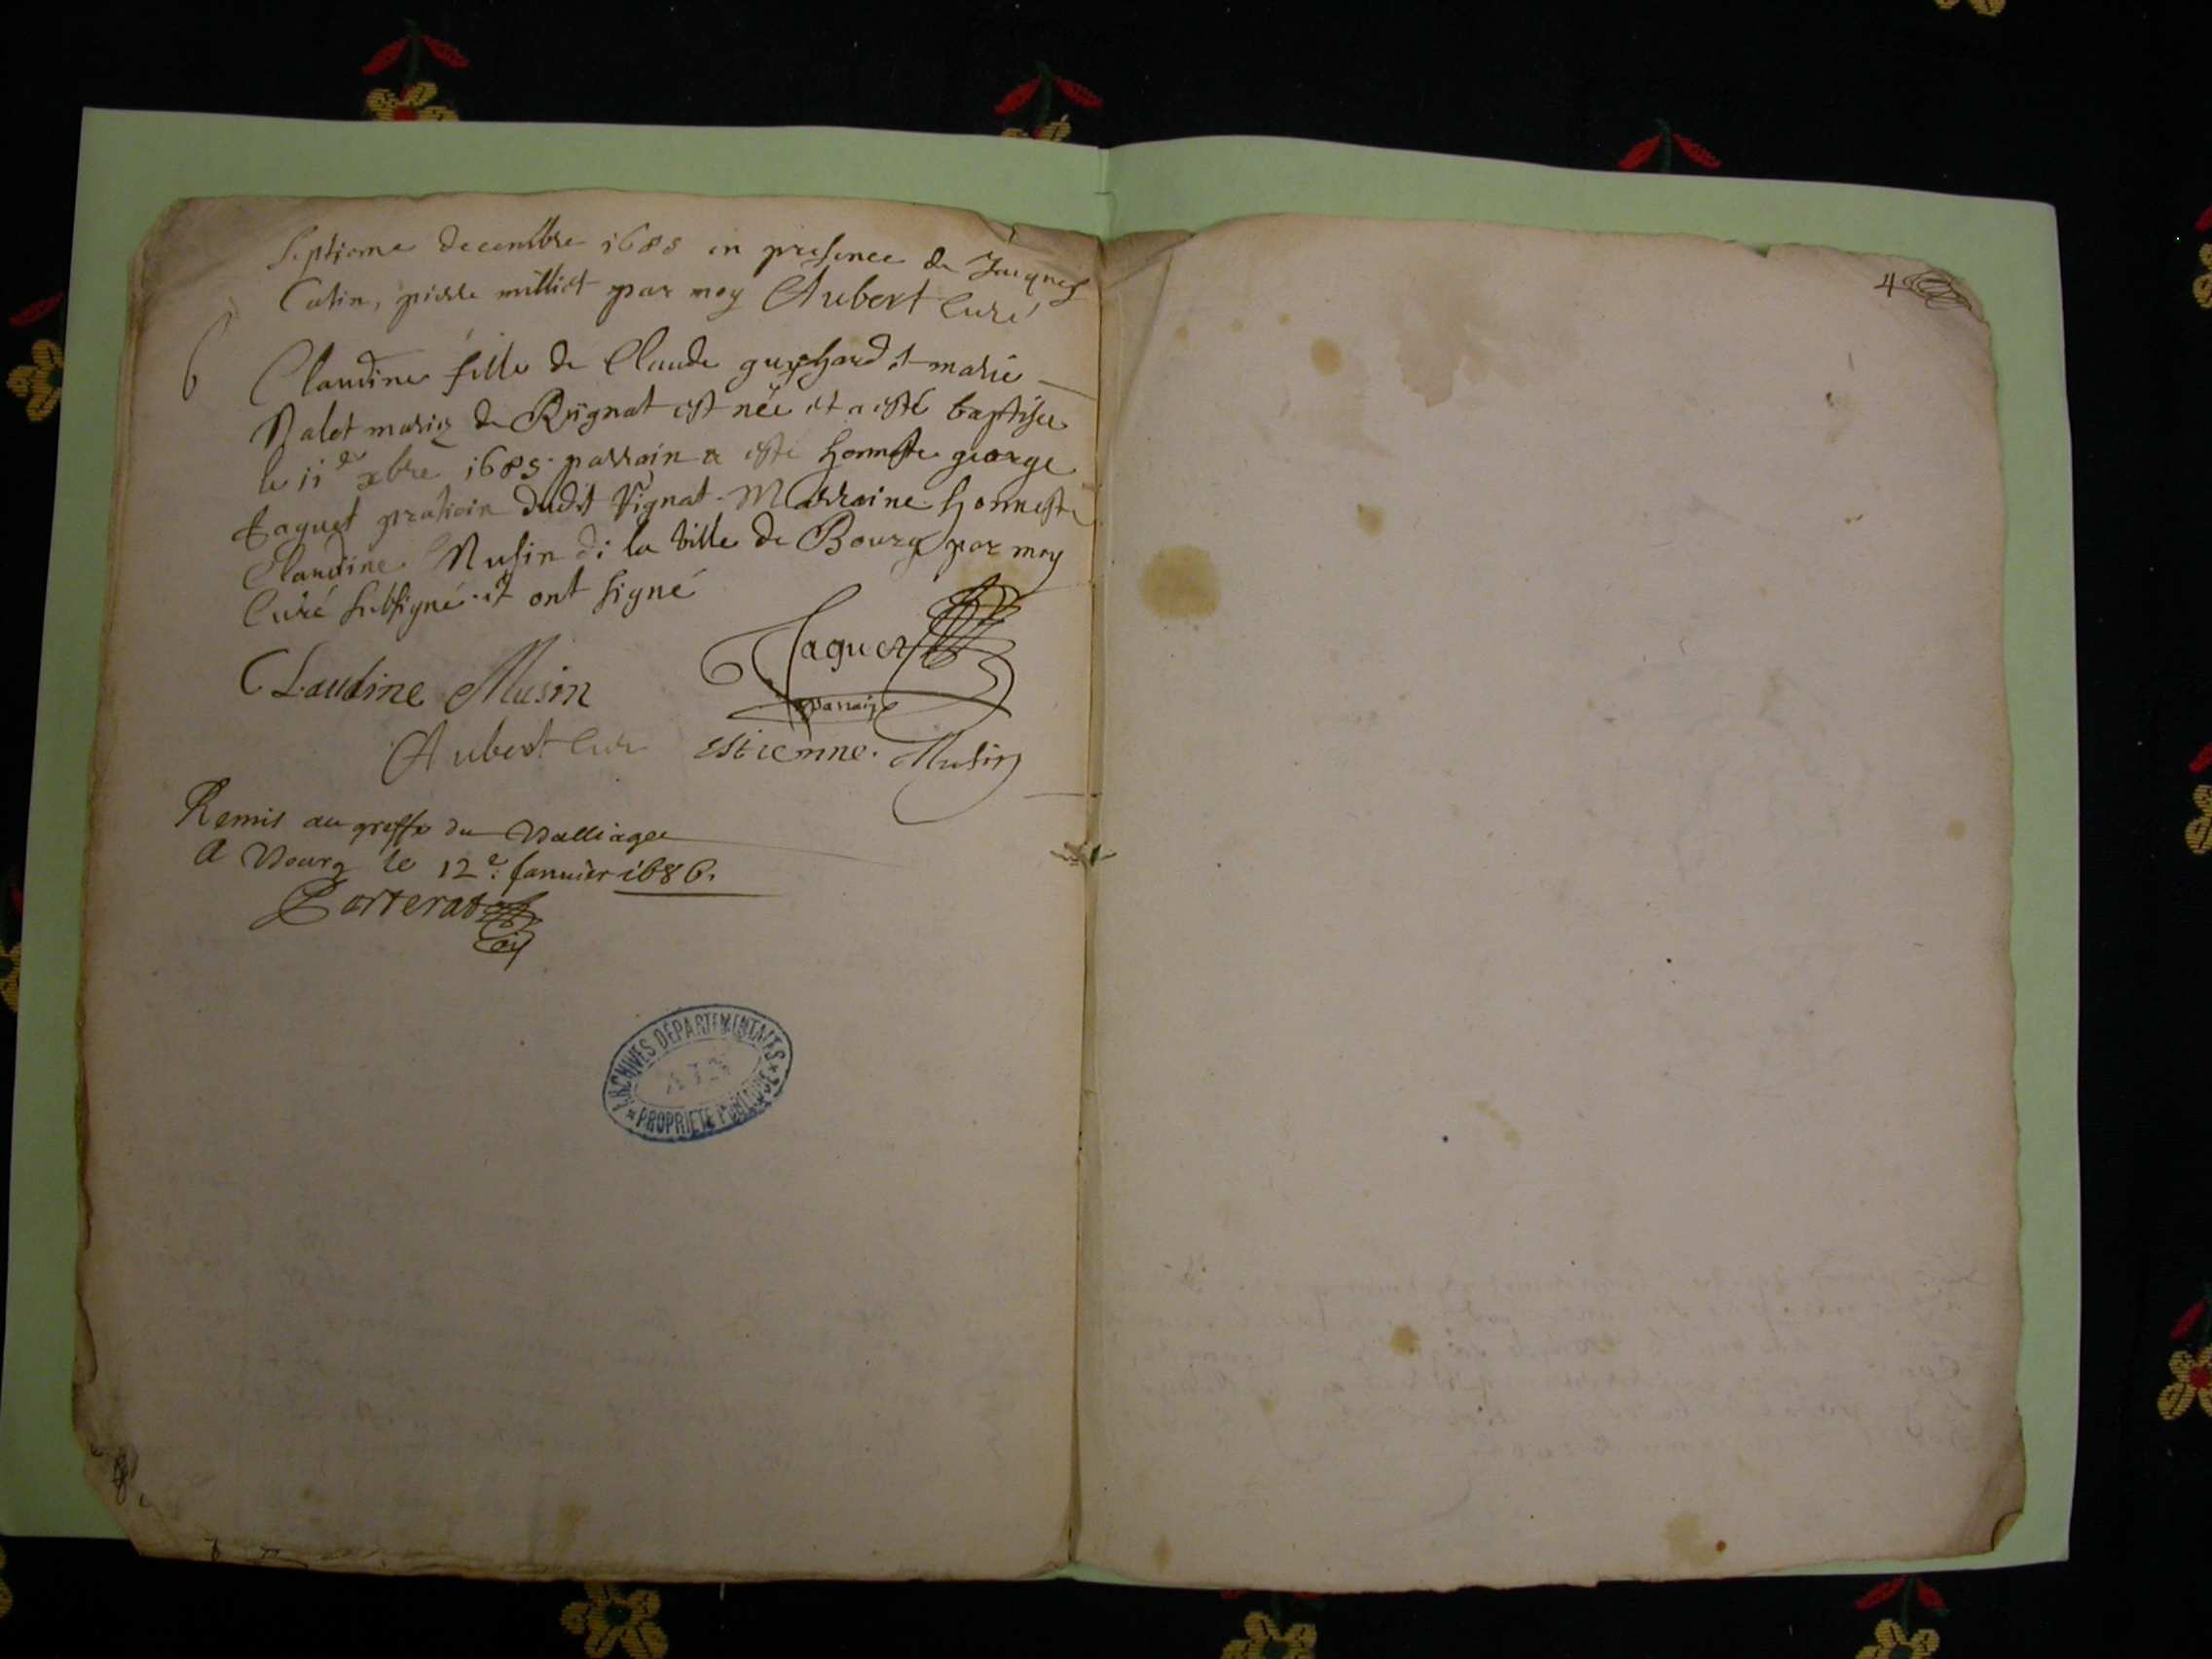 Septieme decembre 1685 en presence de Jacques
Catin, pierre milliet par moy Aubert Curé
b Claudine fille de Claude guichard et marie
Nalet mariez de Rignat est née et a esté baptisée
le 11e xbre 1685. parrain a esté honneste george
Jaquet praticien dudit Rignat. Marraine honneste
Claudine Musin de la ville de Bourg par moy
Curé subsigné. et ont signé
Jaquet
CLaudine Musin
parrain
Aubert Curé estienne. Musin
Remis au greffe du Balliage
A Bourg le 12e. Janvier 1686.
ARCHIVES DÉPARTEMENTALES
AIN
PROPRIÉTÉ PUBLIQUE
4